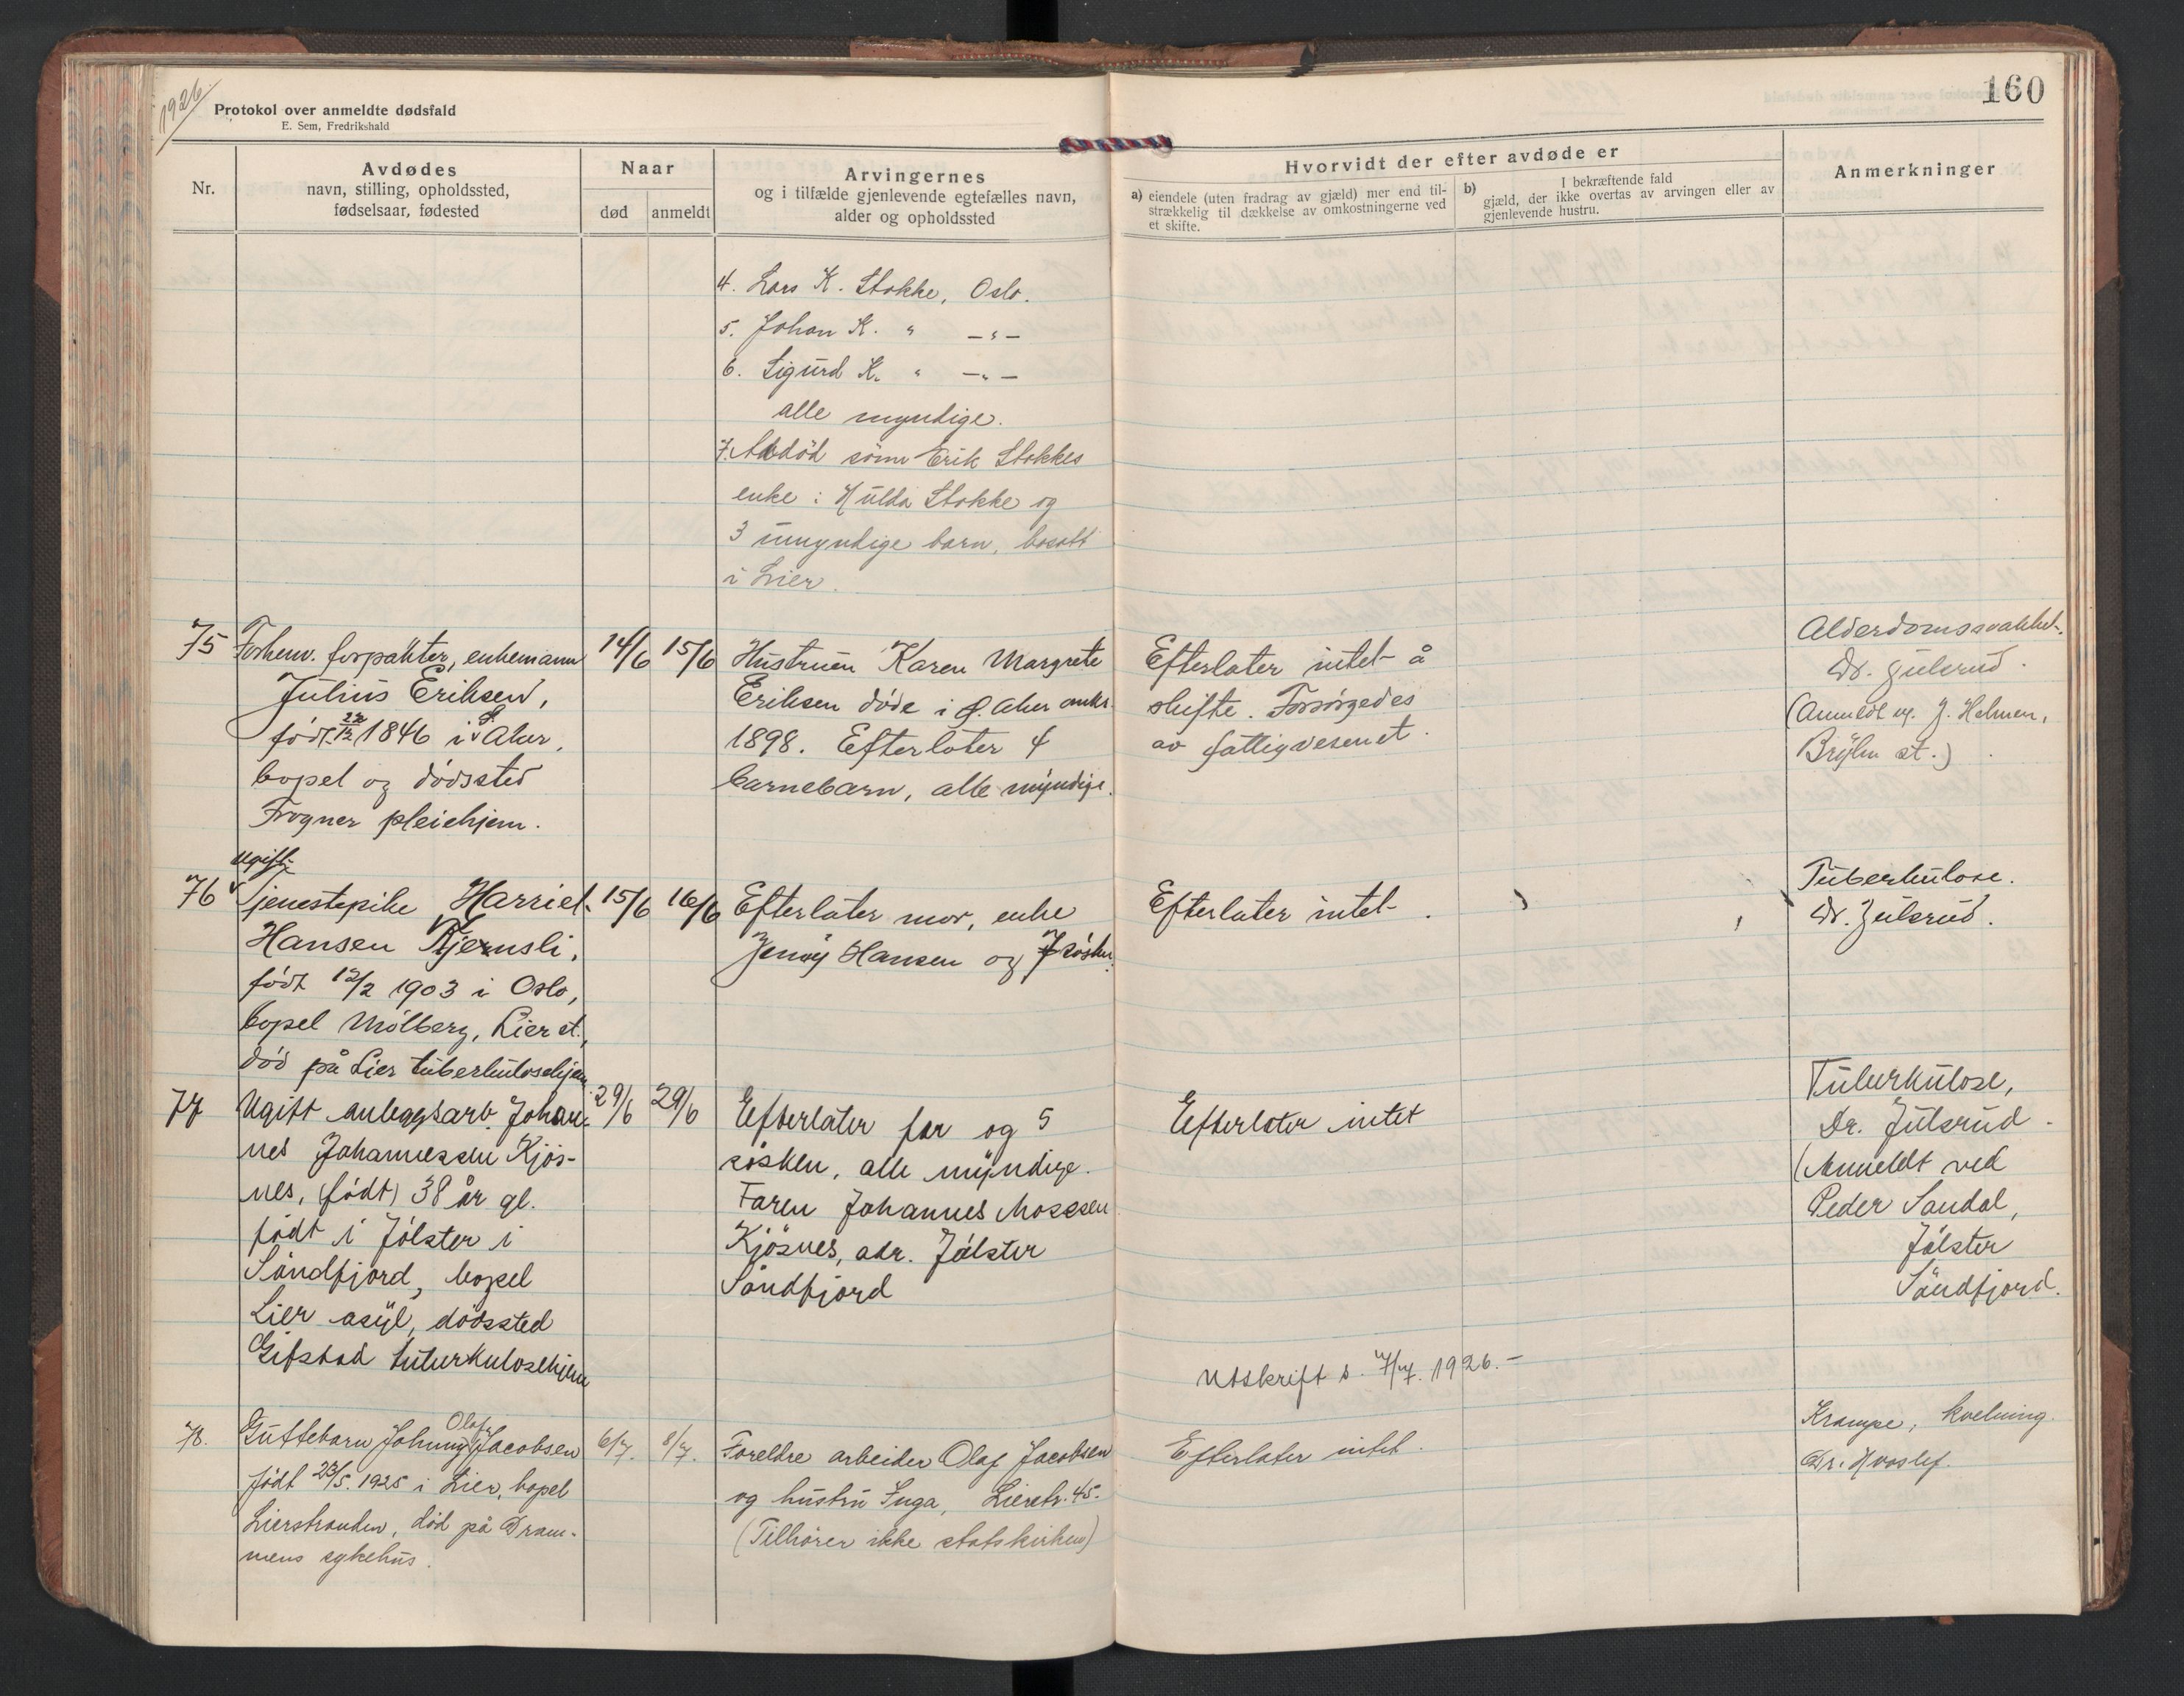 1926.
Protokol over anmeldte dødsfald
E. Sem, Fredrikshald
160
Nr.
Avdødes
navn, stilling, opholdssted,
fødselsaar, fødested
Naar
død
anmeldt
Arvingernes
og i tilfælde gjenlevende egtefælles navn,
alder og opholdssted
Hvorvidt der efter avdøde er
a) eiendele (uten fradrag av gjæld) mer end til-
strækkelig til dækkelse av omkostningerne ved
et skifte.
b) I bekræftende fald
gjæld, der ikke overtas av arvingen eller av
gjenlevende hustru.
Anmerkninger
4. Lars K. Stokke, Oslo.
5. Johan K. " — " —
6. Sigurd K. " — " —
alle myndige.
7. Avdød sönn Erik Stokkes
enke: Hulda Stokke og
3 umyndige barn, bosatt
i Lier.
75
Forhenv. forpakter, enkemann
Julius Eriksen,
født 1846 i Ø. Aker,
bopel og dödssted
Frogner pleiehjem.
14/6
15/6
Hustruen Karen Margrete
Eriksen döde i Ø. Aker
1898. Efterlater 4
barnebarn, alle myndige.
Efterlater intet å
skifte. Forsörgedes
av fattigvesenet.
Alderdomssvakhet.
Dr. Julsrud.
(Anmeldt v. J. Helmen,
st.)
76
Ugift
Tjenestepike Harriet
Hansen Kjernsli,
födt 12/2 1903 i Oslo,
bopel Mölberg, Lier st.,
död på Lier tuberkulosehjem
15/6
16/6
Efterlater mor, enke
Jenny Hansen og 7 sösken.
Efterlater intet.
Tuberkulose.
Dr. Julsrud.
77
Ugift anleggsarb. Johan-
nes Johannessen Kjös-
nes, (födt) 38 år gl.
födt i Jölster i
Söndfjord, bopel
Lier asyl, dödssted
Gifstad tuberkulosehjem
29/6
29/6
Efterlater far og 5
sösken, alle myndige.
Faren Johannes Mossesen
Kjösnes, adr. Jölster
Söndfjord
Efterlater intet
Utskrift s. 7/7. 1926.—
Tuberkulose,
Dr. Julsrud.
(Anmeldt ved
Peder Sandal,
Jölster
Söndfjord.
78.
Guttebarn Johnny Olaf Jacobsen
født 23/5. 1925 i Lier, bopel
Lierstranden, död på Dram-
mens sykehus.
6/7.
8/7.
Foreldre arbeider Olaf Jacobsen
og hustru Inga, Lierstr. 45.
(Tilhörer ikke statskirken)
Efterlater intet.
Krampe, kvelning.
Dr. Hvoslef.